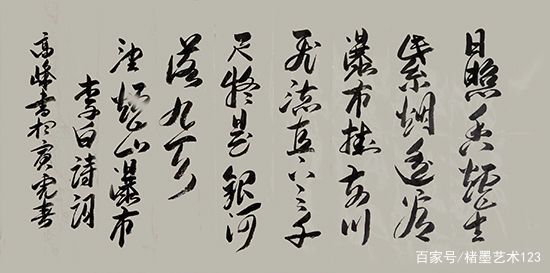 日照香炉生
紫烟遥看
瀑布挂前川
飞流直下三千
尺疑是銀河
落九天
望炉山瀑布
李白詩词
高峰書於寅虎春
百家号/楮墨艺术123